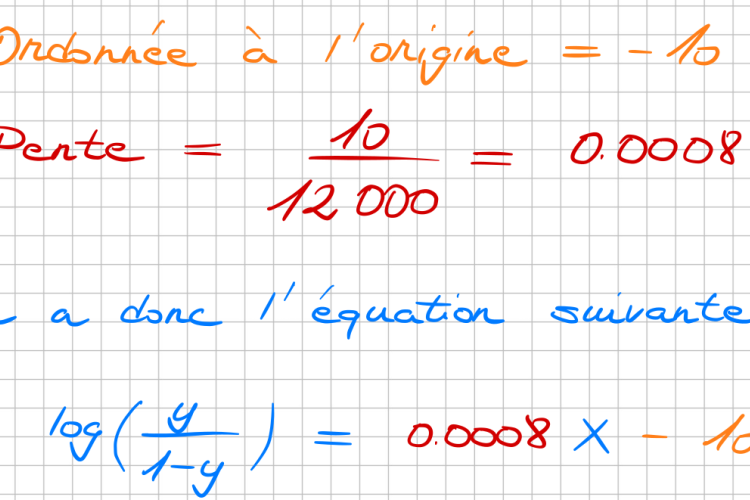 Ordonnée à l'origine = - 10
Pente = 10 / 12 000 = 0.0008
a donc l'équation suivante
log( y / 1-y ) = 0.0008 X - 10